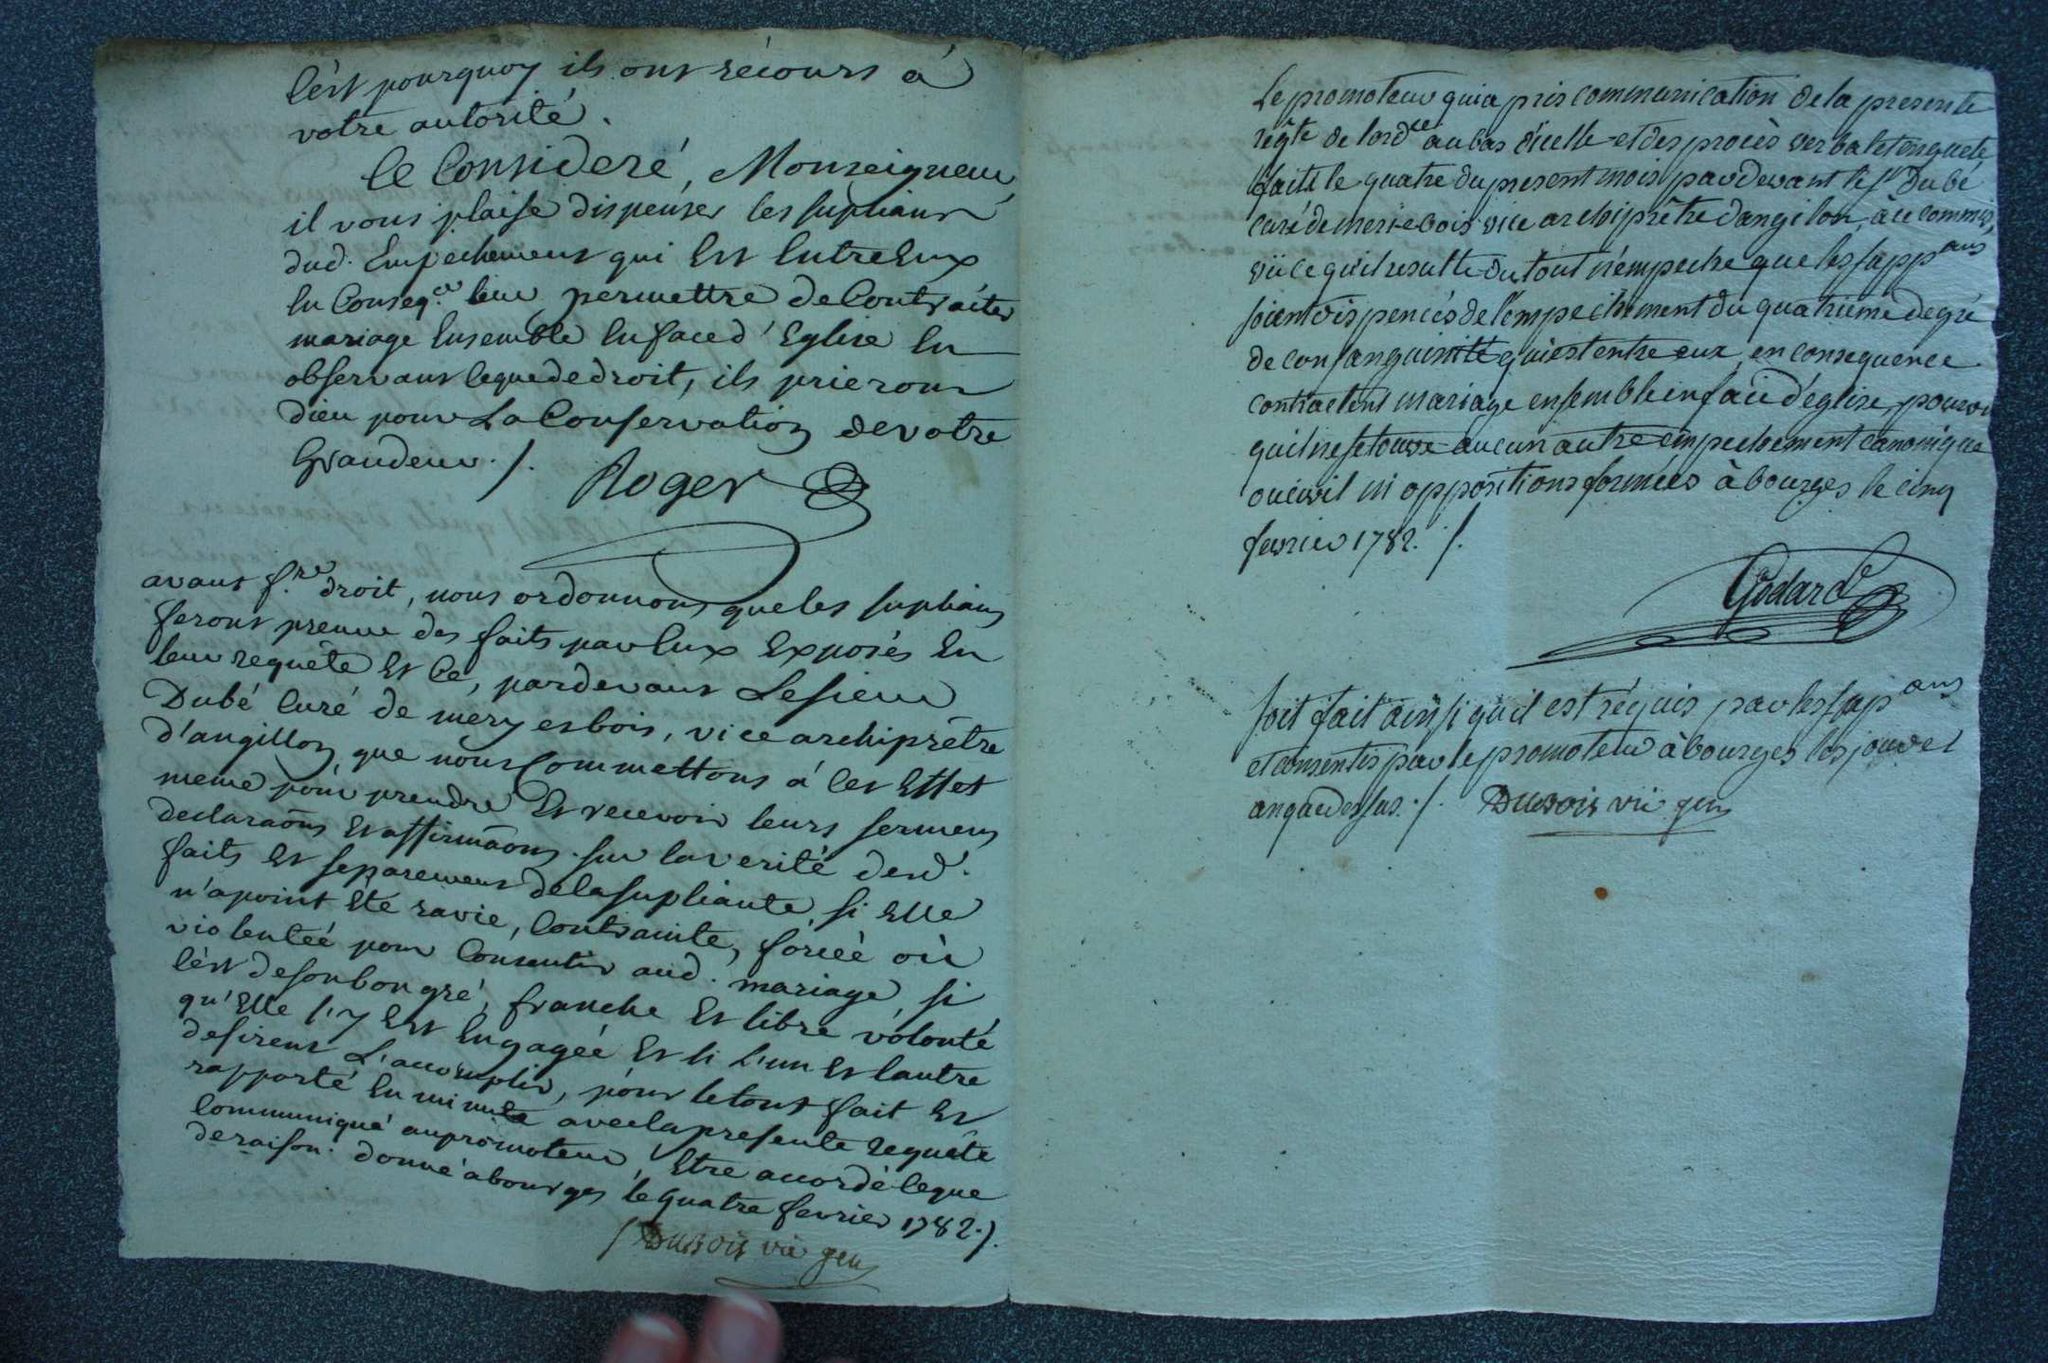 C'est pourquoy ils ont récours á
votre autorité.
Ce Consideré, Monseigneur,
il vous plaise dispenser les supliants
dud. Empechement qui Est Entre Eux
En Conseq.ce leur permettre de Contracter
mariage Ensemble En face d'Eglise En
observant ce que de droit, ils prieront
dieu pour La Conservation de votre
Grandeur./.
Roger
avant f.re droit, nous ordonnons que les supliants
feront preuve des faits par Eux Exposés En
leur requéte Et Ce, pardevant Le sieur
Dubé Curé de mery esbois, vice archiprêtre
d'angillon, que nous Commettons á Cet Effet
meme pour prendre Et recevoir leurs sermens
declaraõns Et affirmaõns sur la verité desd.
faits Et separement de la supliante, si Elle
n'a point Eté ravie, Contrainte, forcée oú
violentée pour Consentir aud. mariage, si
C'est de son bon gré, franche Et libre volonté
qu'Elle s'y Est Engagée Et si L'un Et l'autre
desirent L'accomplir, pour le tout fait Et
rapporté En minute avec la presente requéte
Communiqué au promoteur, Etre accordé ce que
de raison. donné a bourges le quatre fevrier 1782./.
Dubois vic gen
Le promoteur qui a pris communication de la presente
reqte de lordce au bas d'icelle et des procès verbal et enquete
faite le quatre du present mois par devant le sr Dubé
curé de meri ebois vice archiprêtre dangilon, à ce commis,
vû ce qu'il resulte du tout n'empeche que les suppans
soient dispencés de l'empechement du quatrieme degré
de consanguinité qui est entre eux, en consequence
contractent mariage ensemble en face d'église, pourvu
quil ne se trouve aucun autre empechement canonique
ou civil ni oppositions formées à bourges le cinq
fevrier 1782./.
Godard
soit fait ainsi qu'il est réquis par les supans
et consentis par le promoteur à bourges les jour et
an que dessus./. Dubois vic gen